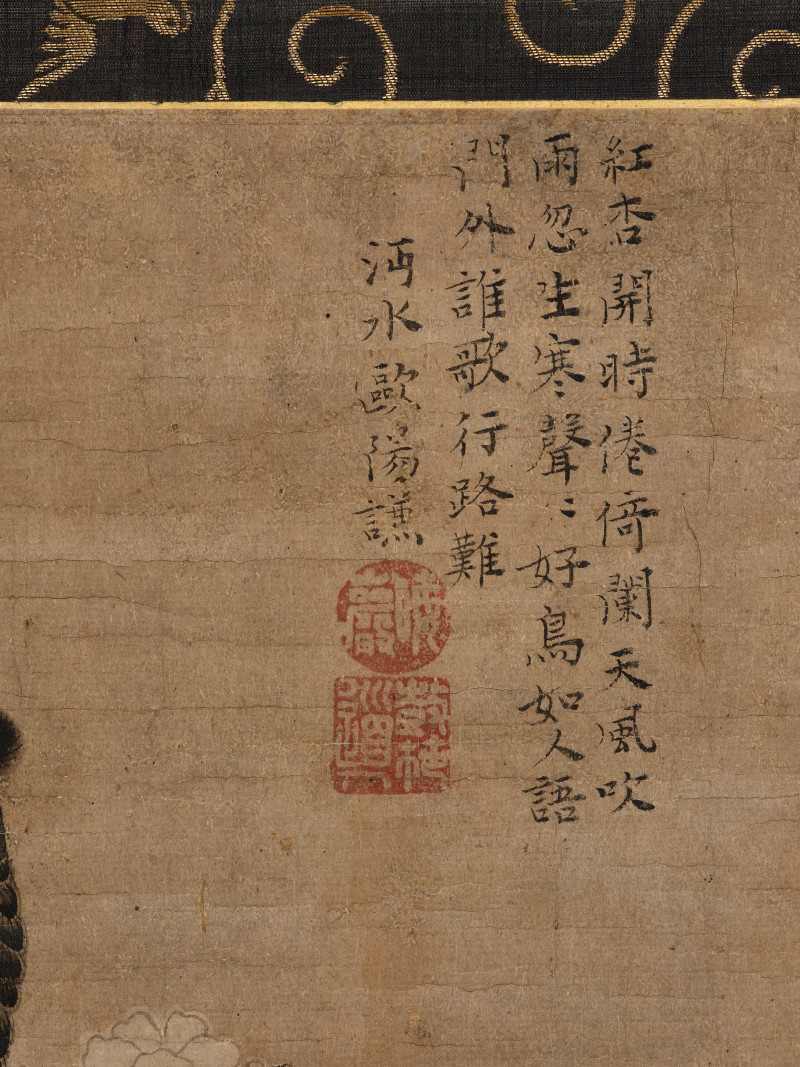 紅杏開時倦倚闌天風吹
雨忽生寒聲〻好鳥如人語
門外誰歌行路難
沔水歐陽謙